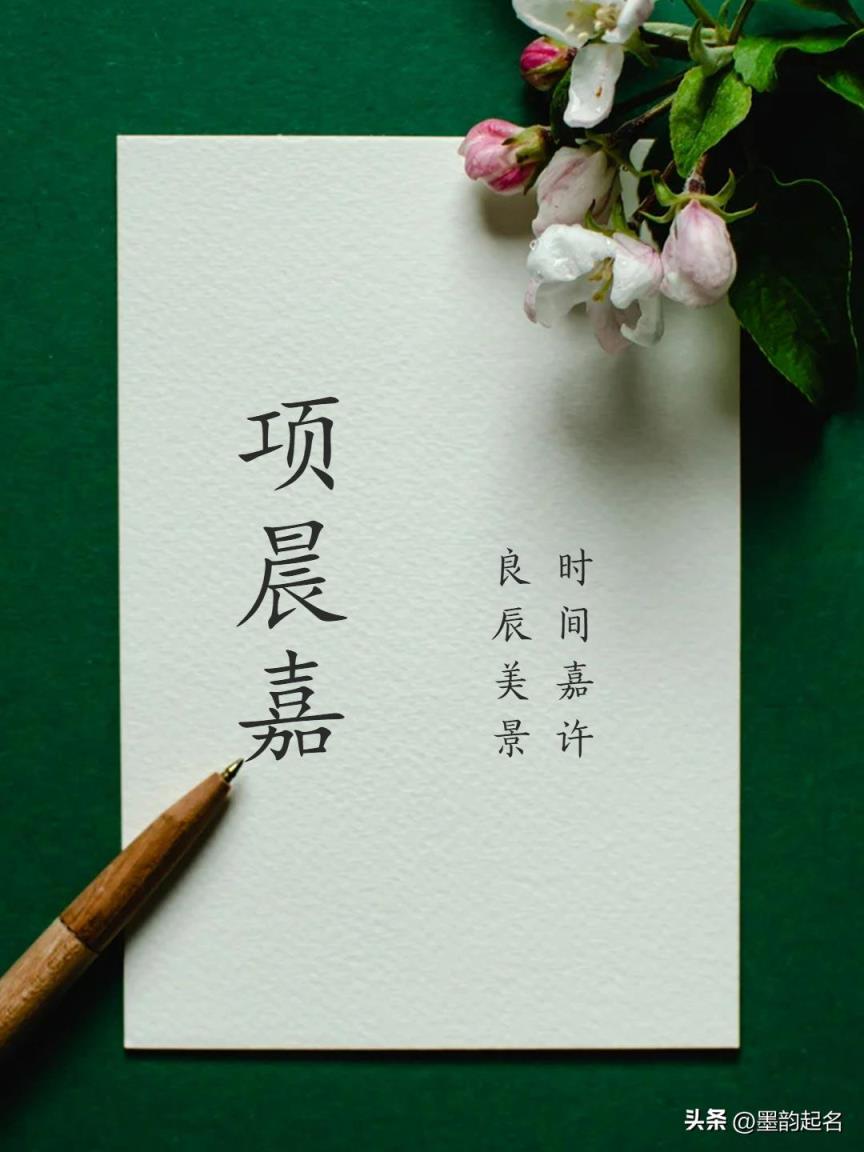 项晨嘉
时间嘉许
良辰美景
头条 @墨韵起名